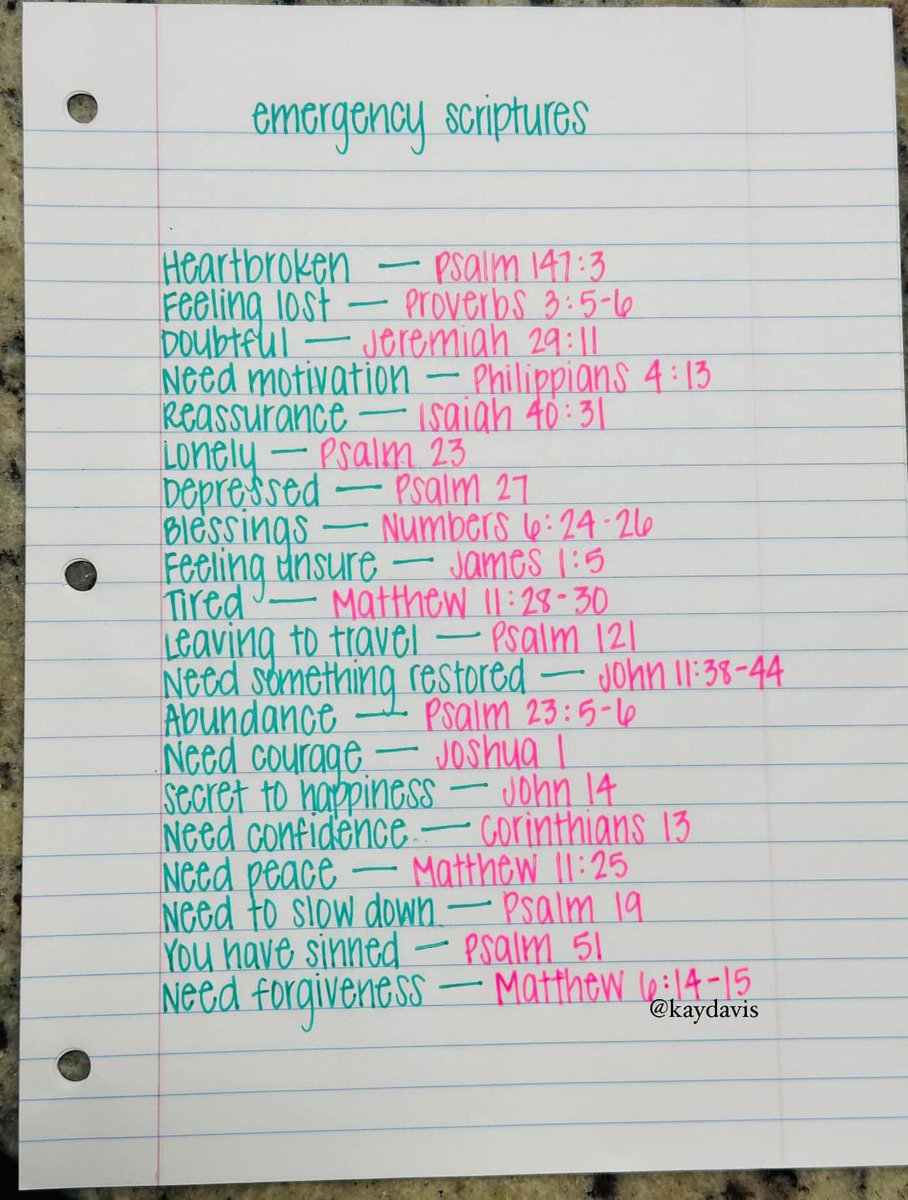 emergency scriptures
Heartbroken — Psalm 147:3
Feeling lost — Proverbs 3:5-6
Doubtful — Jeremiah 29:11
Need motivation — Philippians 4:13
Reassurance — Isaiah 40:31
Lonely — Psalm 23
Depressed — Psalm 27
Blessings — Numbers 6:24-26
Feeling unsure — James 1:5
Tired — Matthew 11:28-30
Leaving to travel — Psalm 121
Need something restored — John 11:38-44
Abundance — Psalm 23:5-6
Need courage — Joshua 1
Secret to happiness — John 14
Need confidence — Corinthians 13
Need peace — Matthew 11:25
Need to slow down — Psalm 19
You have sinned — Psalm 51
Need forgiveness — Matthew 6:14-15
@kaydavis